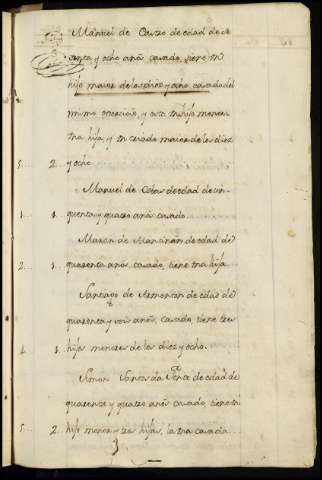 Manuel de Castro de edad de se
senta y ocho años casado, tiene un
hijo maior de los diez y ocho, casado del
mismo exercicio, y otro tambien menor
una hija, y un criado maior de los diez
5... 2. y ocho
Manuel de Cotas de edad de cin-
1... 1. quenta y quatro años casado
de edad de
2... 1. quarenta años casado, tiene una hija
Santiago de de edad de
quarenta y seis años, casado, tiene tres
4... 1. hijos menores de los diez y ocho.
Simon de edad de
quarenta y quatro años casado, tiene un
5... 2. hijo menor y tres hijas, la una casada